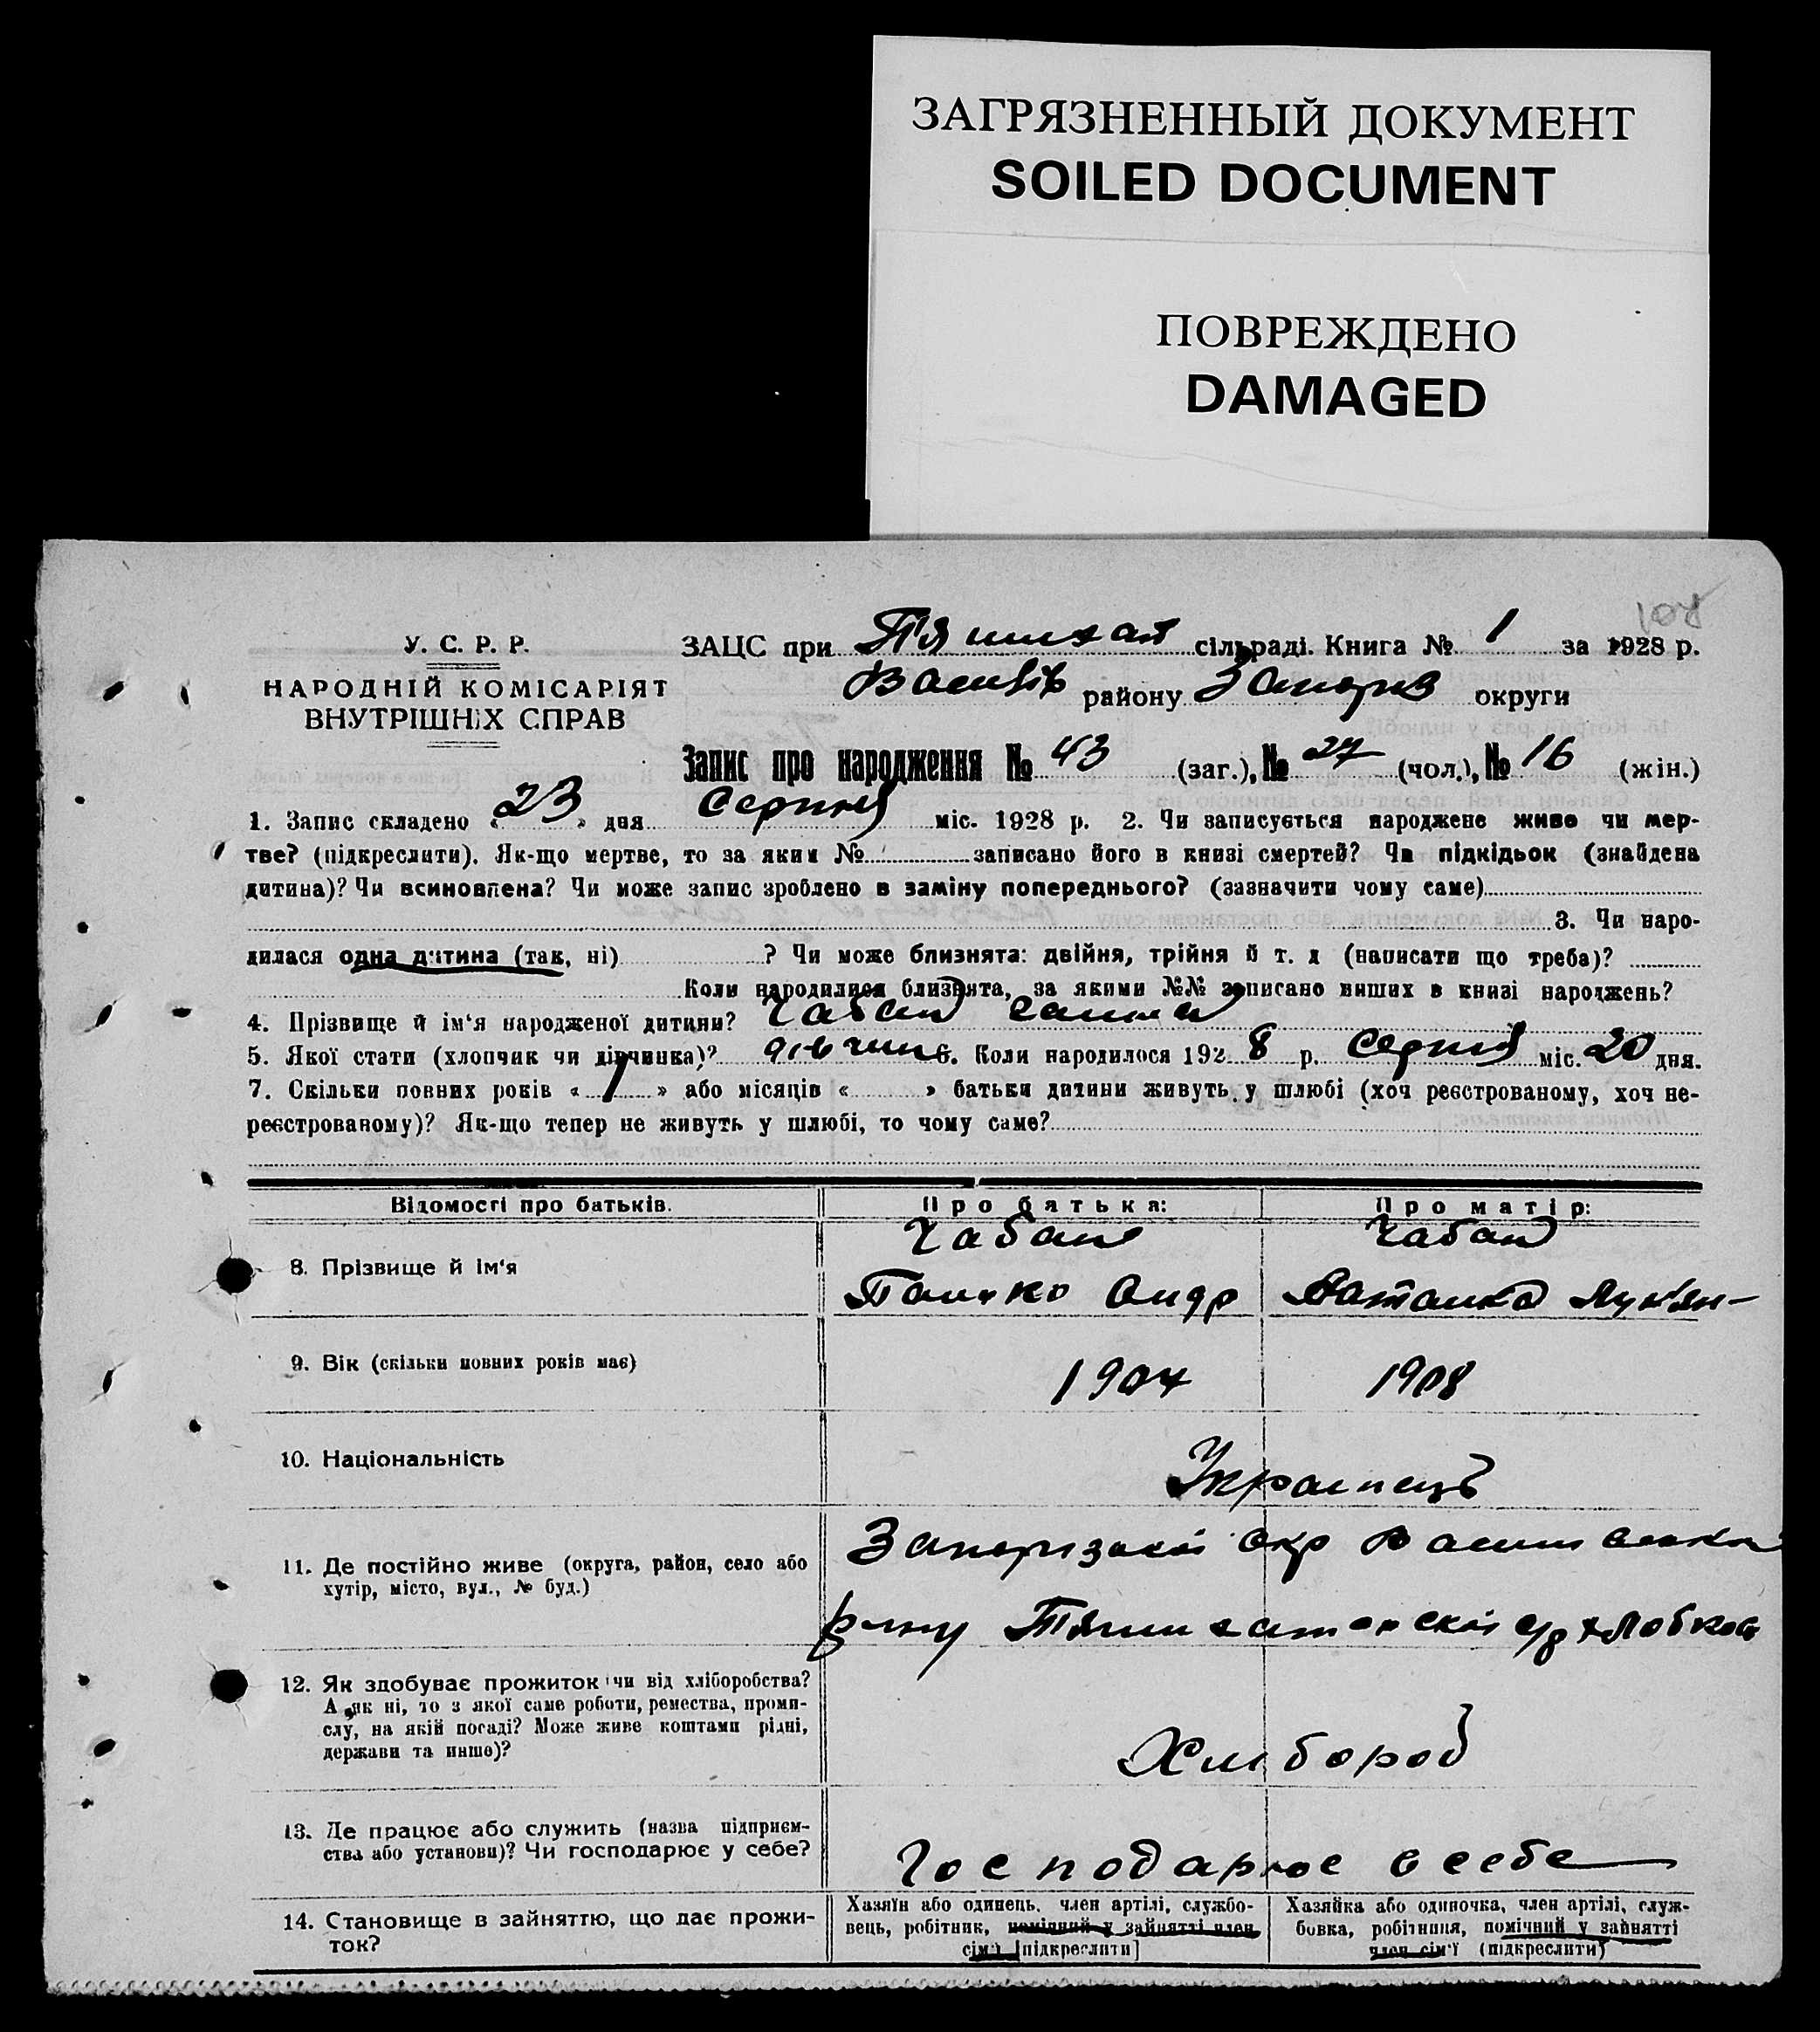 ЗАГРЯЗНЕННЫЙ ДОКУМЕНТ
SOILED DOCUMENT
ПОВРЕЖДЕНО
DAMAGED
108
У. С. Р. Р.
НАРОДНІЙ КОМІСАРІЯТ
ВНУТРІШНІХ СПРАВ
ЗАЦС при Пятихат сільраді. Книга № 1 за 1928 р.
Василів району Запоріз округи
Запис про народження № 43 (заг.), № 27 (чол.), № 16 (жін.)
1. Запис складено « 23 » дня Серпня міс. 1928 р. 2. Чи записується народжене живе чи мер-
тве? (підкреслити). Як-що мертве, то за яким № записано його в книзі смертей? Чи підкідьок (знайдена
дитина)? Чи всиновлена? Чи може запис зроблено в заміну попереднього? (зазначити чому саме)
3. Чи наро-
дилася одна дитина (так, ні) ? Чи може близнята: двійня, трійня й т. д (написати що треба)?
Коли народилися близнята, за якими №№ записано инших в книзі народжень?
4. Прізвище й ім‘я народженої дитини? Чабан Ганна
5. Якої статі (хлопчик чи дівчинка)? дівчин 6. Коли народилося 192 8 р. Серпня міс. 20 дня.
7. Скільки повних років « 1 » або місяців « » батьки дитини живуть у шлюбі (хоч реєстрованому, хоч не-
реєстрованому)? Як-що тепер не живуть у шлюбі, то чому саме?
Відомості про батьків. Про батька: Про матір:
8. Прізвище й ім‘я
Чабан Чабан
Андр Лукян-
9. Вік (скільки повних років має)
1904 1908
10. Національність
Українець
11. Де постійно живе (округа, район, село або
хутір, місто, вул., № буд.)
Запорізької окр Василівськ
р-ну Пятихатської с/р
12. Як здобуває прожиток чи від хліборобства?
А як ні, то з якої саме роботи, ремества, проми-
слу, на якій посаді? Може живе коштами рідні,
держави та инше)?
Хлібороб
13. Де працює або служить (назва підприєм-
ства або установи)? Чи господарює у себе?
Господарює в себе
14. Становище в зайняттю, що дає прожи-
ток?
Хазяїн або одинець, член артілі, службо-
вець, робітник, помічний у зайнятті член
сім‘ї [підкреслити]
Хазяйка або одиночка, член артілі, служ-
бовка, робітниця, помічний у зайнятті
член сім‘ї (підкреслити)